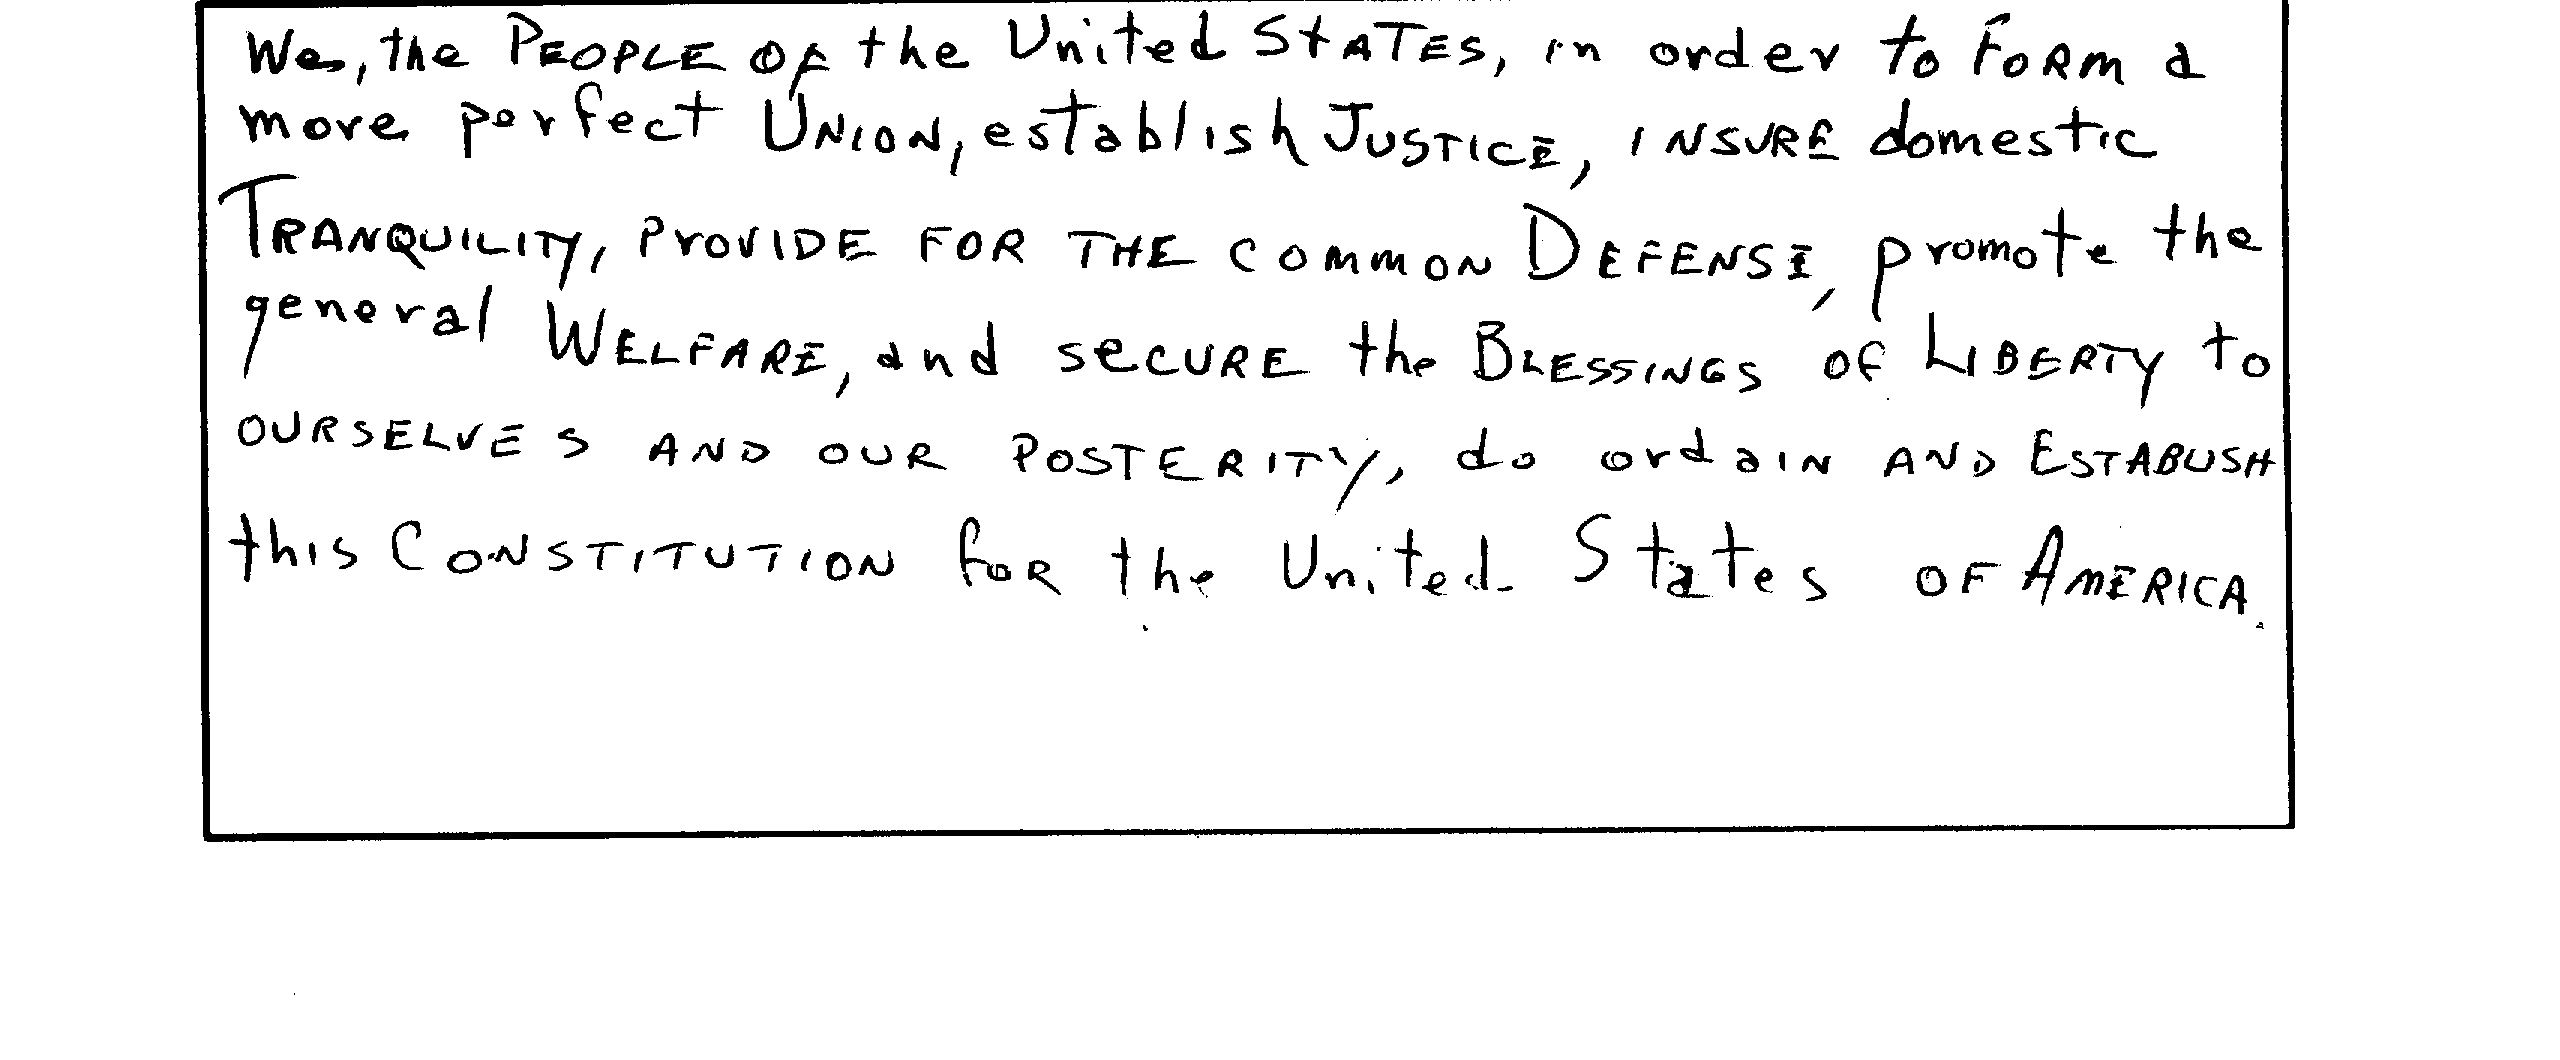 We, the PEOPLE OF the United StATES, in order to FORM a
more perfect UNION, establish JUSTICE, INSURE domestic
TRANQUILITY, PROVIDE FOR THE COMMON DEFENSE, promote the
general WELFARE, and SECURE the BLESSINGS OF LIBERTY to
OURSELVES AND OUR POSTERITY, do ordaIN AND ESTABLISH
this CONSTITUTION for the United States OF AMERICA.